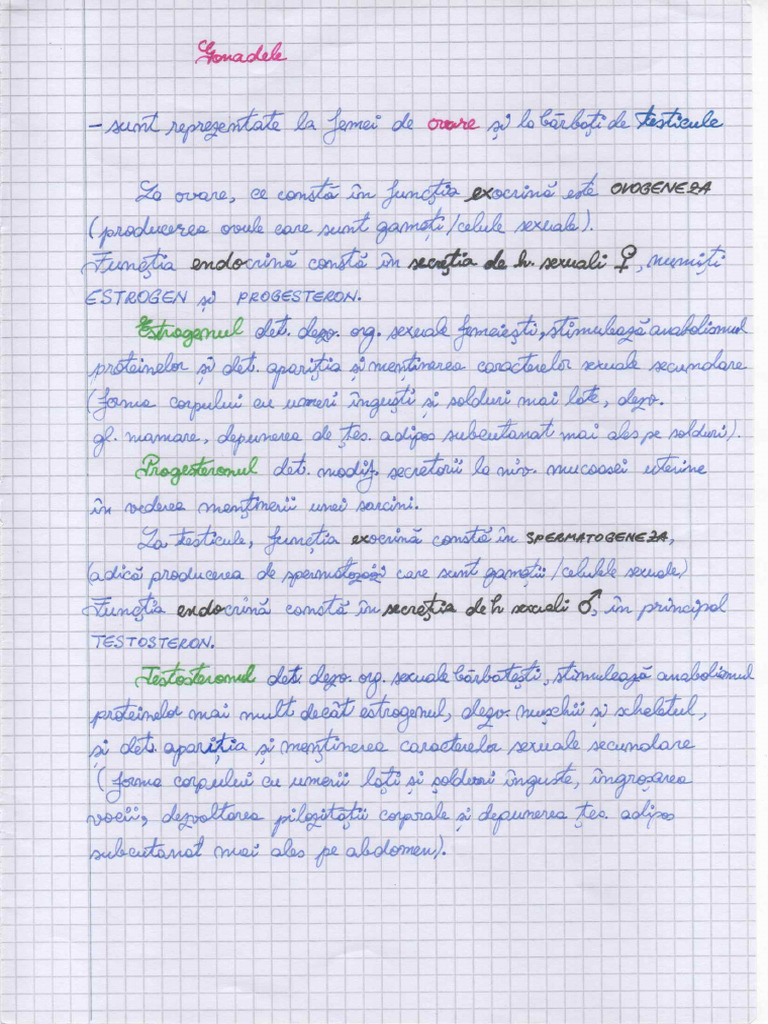 Gonadele
- sunt reprezentate la femei de ovare și la bărbați de testicule
La ovare, ce constă în funcția exocrină este OVOGENEZA
(producerea ovule care sunt gameți/celule sexuale).
Funcția endocrină constă în secreția de h. sexuali ♀, numiți
ESTROGEN și PROGESTERON.
Estrogenul det. dezv. org. sexuale femeiești, stimulează anabolismul
proteinelor și det. apariția și menținerea caracterelor sexuale secundare
(forma corpului cu umeri înguști și solduri mai late, dezv.
gl. mamare, depunerea de țes. adipos subcutanat mai ales pe solduri).
Progesteronul det. modif. secretorii la niv. mucoasei uterine
în vederea menținerii unei sarcini.
La testicule, funcția exocrină constă în SPERMATOGENEZA,
(adică producerea de spermatozoizi care sunt gameții/celulele sexuale)
Funcția endocrină constă în secreția de h sexuali ♂, în principal
TESTOSTERON.
Testosteronul det. dezv. org. sexuale bărbătești, stimulează anabolismul
proteinelor mai mult decât estrogenul, dezv. mușchii și scheletul,
și det. apariția și menținerea caracterelor sexuale secundare
(forma corpului cu umerii lați și șolduri înguste, îngroșarea
vocii, dezvoltarea pilozității corprale și depunerea țes. adipos
subcutanat mai ales pe abdomen).